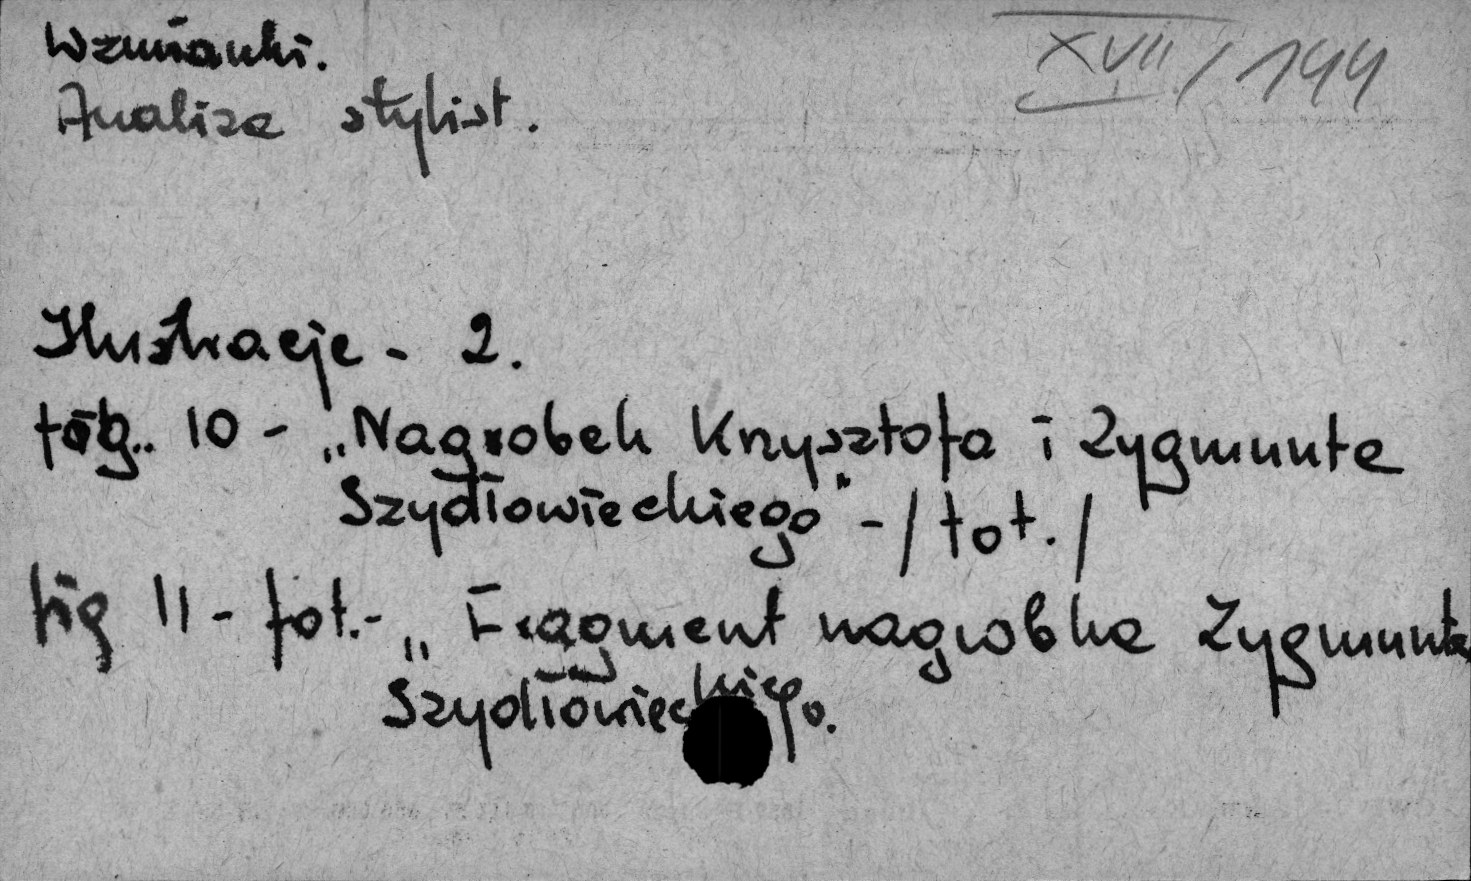 XVII/144
Wzmianki.
Analiza stylist.
Ilustracje - 2.
fig. 10 - „Nagrobek Krzysztofa i Zygmunta
Szydłowieckiego" - /fot./
fig 11 - fot. - „Fragment nagrobka Zygmunta
Szydłowieckiego.